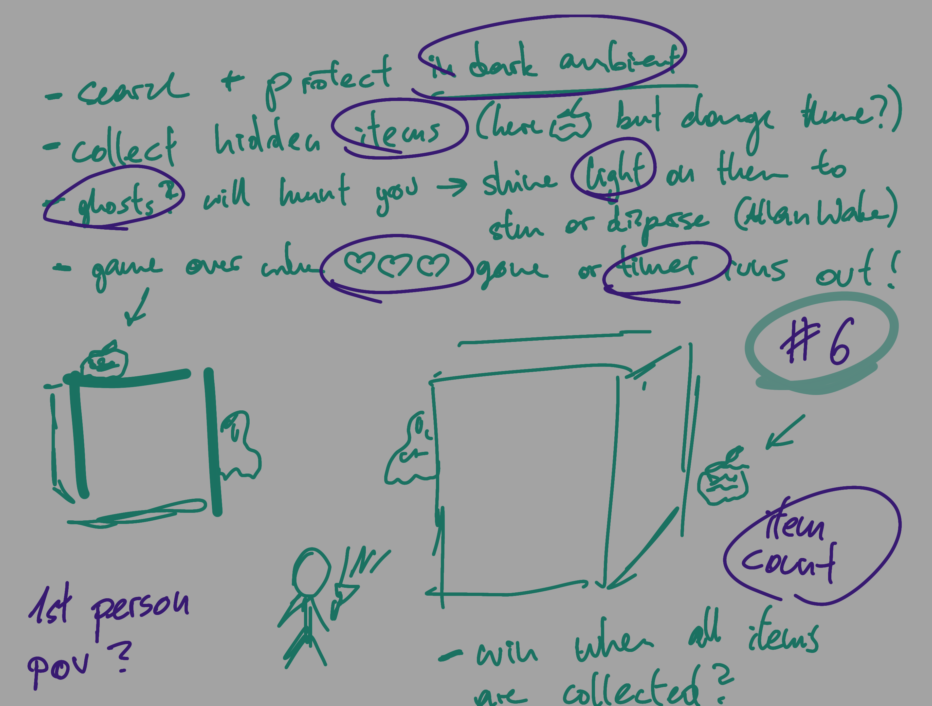 - search + protect in dark ambient
- collect hidden items (here but change theme?)
- ghosts? will hunt you → shine light on them to
stun or disperse (Allan Wake)
- game over when ♡♡♡ gone or timer runs out!
#6
item
count
1st person
pov?
- win when all items
are collected?